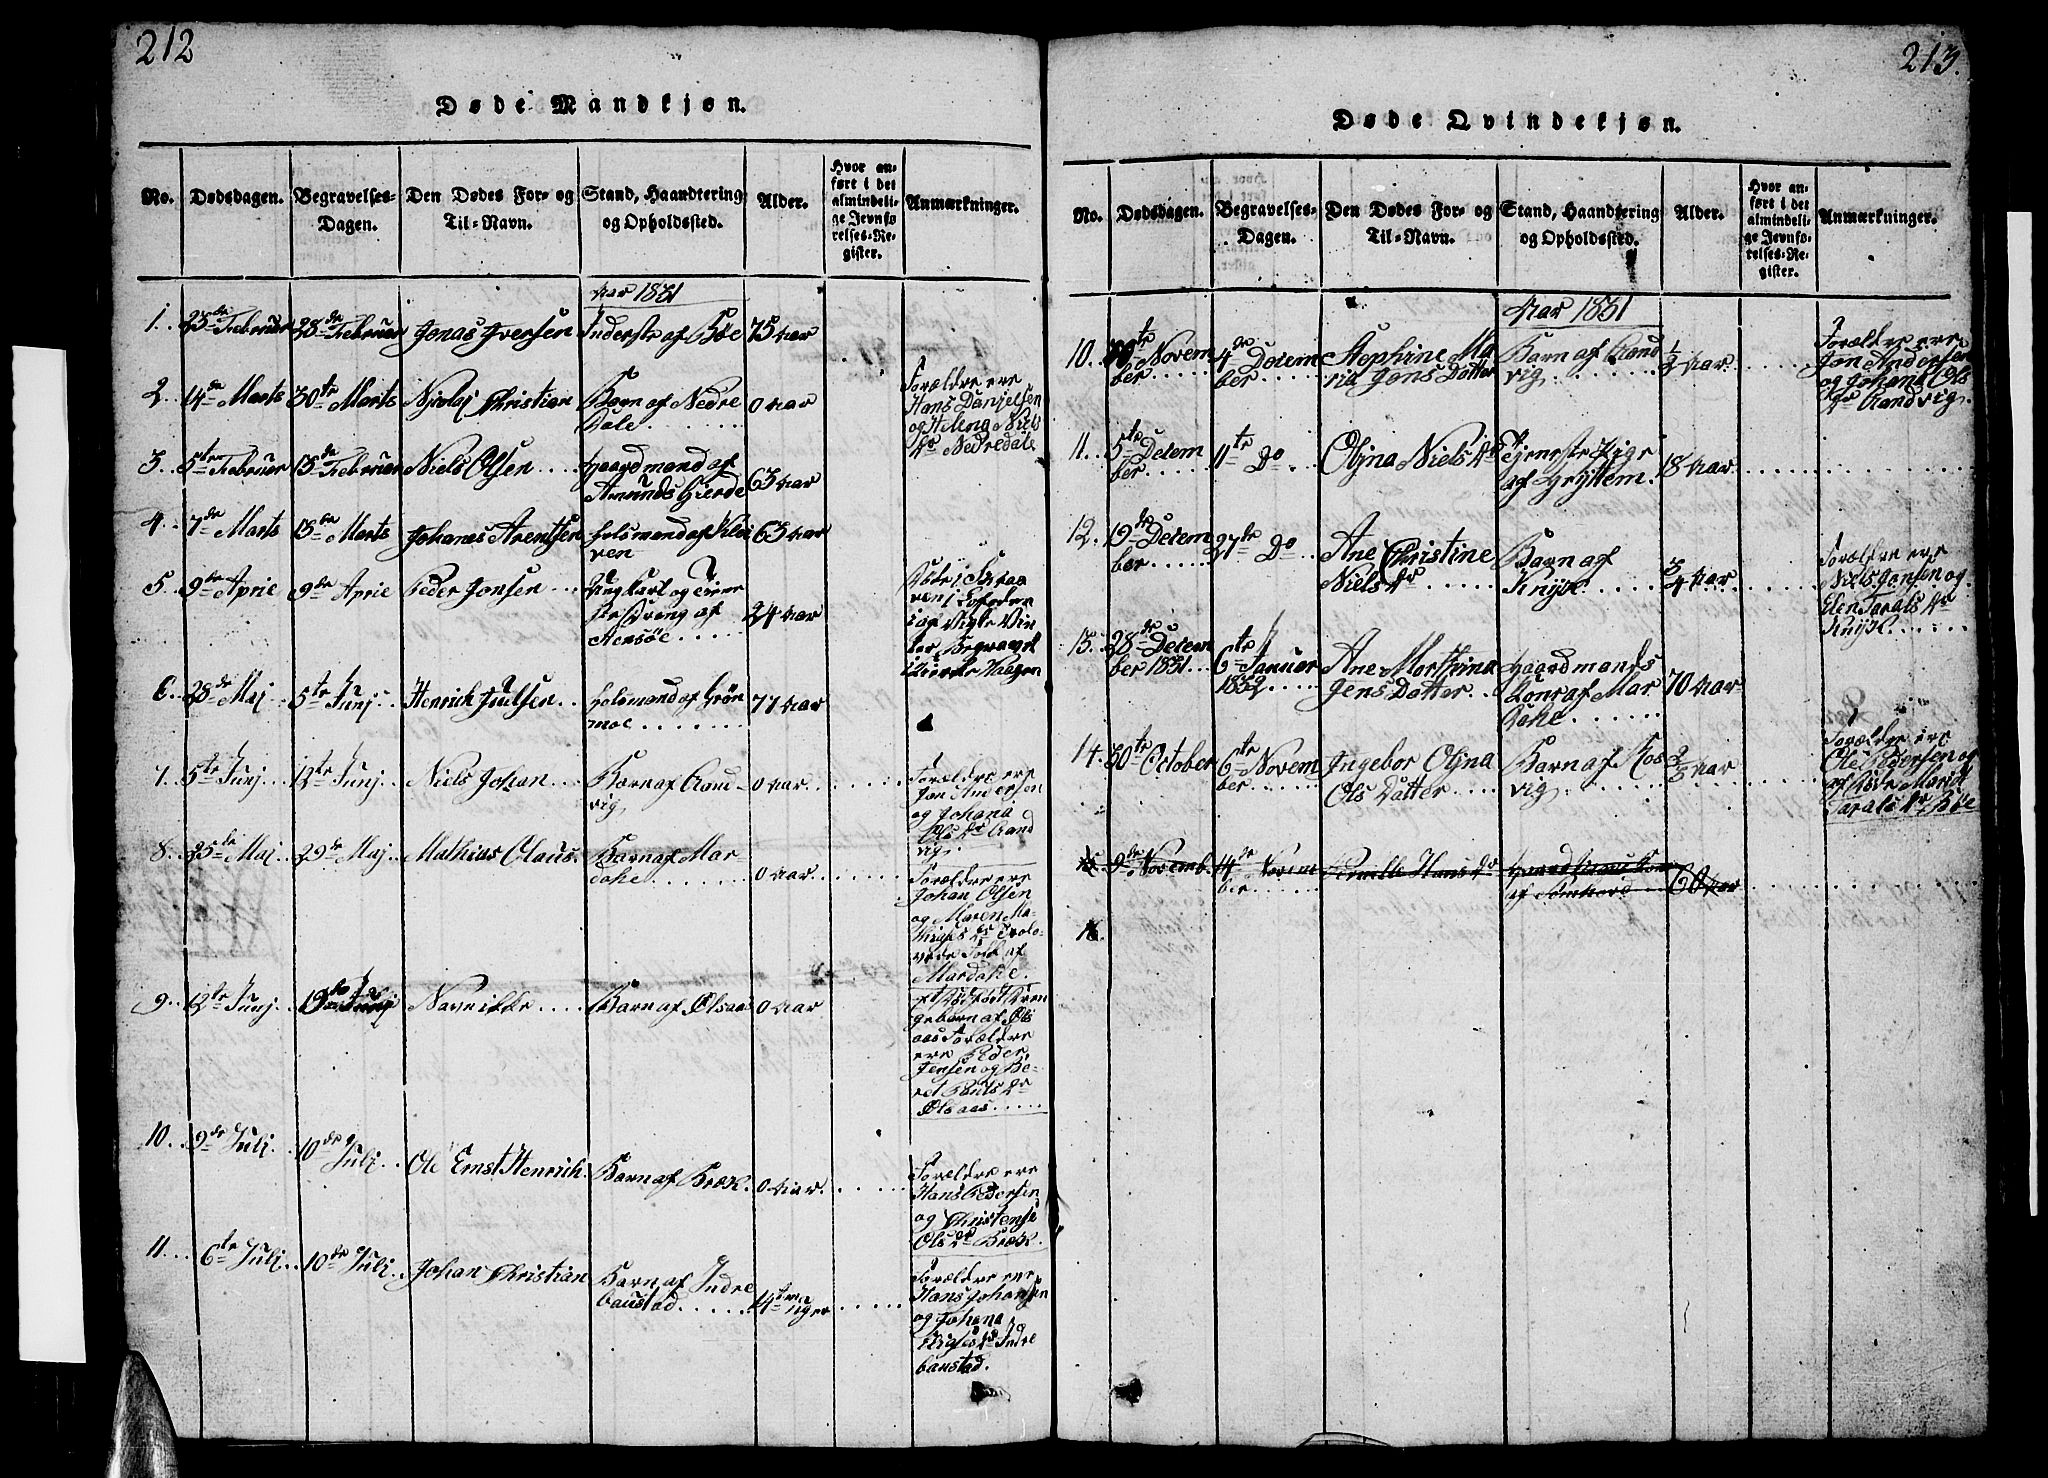 212
Døde Mandkjøn.
No.
Dødsdagen.
Begravelses-
Dagen.
Den Dødes For- og
Til-Navn.
Stand, Haandtering
og Opholdssted.
Alder.
Hvor an-
ført i det
almindeli-
ge Jevnfø-
relses-Re-
gister.
Anmærkninger.
Aar 1831
1. 23de Februar 28de Februar Jonas Iversen Inderstr af Bøe 75 Aar
2. 14de Marts 30te Marts Nicolaj Christian Barn af Nedre
Dale 0 Aar
Forældre ere
Hans Danjelsen
og Helena Niels
Dr Nedredale
3. 5te Februar 13de Februar Niels Olsen Gaardmand af
Amunds Gierde 63 Aar
4. 7de Marts 13de Marts Johanes Arentsen Holsmand af Klei
ven 63 Aar
5. 9de April 9de April Peder Jonsen Ung Karl og
af
24 Aar
6. 28de Maj 5te Junj Henrich Juulsen Holsmand af Grøn
moe 77 Aar
7. 5te Junj 12te Junj Niels Johan Barn af Aand-
vig 0 Aar
Forældre ere
Jon Andersen
og Johana
Ols Dr Aand
vig.
8. 25de Maj 29de Maj Mathias Olaus. Barn af Mar
dahe 0 Aar
Forældre ere
Johan Olsen
og Maren Ma-
thias Dr Trolo-
vede Folk af
Mardahe.
9. 12te Junj 19de Junj Navnilde Barn af Olsaas 0 Aar
Et Død født Dren
gebarn af Ols
aas Forældre
ere Peder
Jensen og Be-
ret Pouls Dr
Olsaas
10. 9de Juli 10de Juli Ole Ernst Henrich. Barn af Bræk. 0 Aar
Forældre ere
Hans Pedersen
og Christense
Ols Dr Bræk.
11. 6te Juli 10de Juli Johan Christian Barn af Indre
baustad 14ten Uger
Forældre ere
Hans Johansen
og Johana
Dr Indre
baustad.
213.
Døde Qvindekjøn.
No.
Dødsdagen.
Begravelses-
Dagen.
Den Dødes For- og
Til-Navn.
Stand, Haandtering
og Opholdssted.
Alder.
Hvor an-
ført i det
almindeli-
ge Jevnfø-
relses-Re-
gister.
Anmærkninger.
Aar 1831
10. Novem
ber 4de Decem
ber Stephine Ma
ria Jens Datter Barn af Aand
vig 1/2 Aar
Forældre ere
Jon Andersen
og Johana Ols
Dr Aandvig.
11. 5te Decem
ber 11te Do Oljna Niels Dr Tjeneste Pige
af Gryttem. 18 Aar
12. 19de Decem
ber 27de Do Ane Christine
Niels Dr Barn af
Knyk 3/4 Aar
Forældre ere
Niels Jonsen og
Elen Tarals Dr
Knyk
13. 28de Decem
ber 1831. 6te Januar
1832 Ane Morthina
Jens Datter Gaardmands
Kone af Mar
dahe 70 Aar
14. 30te October 6te Novem
ber Ingebor Oljna
Ols Datter Barn af Kos
vig 2/3 Aar
Forældre ere
Ole Pedersen og
Marit
Tarals Dr Bøe
15 9de Novemb. 14de Novem
ber Pernille Hans Dr
af 60 Aar
16.